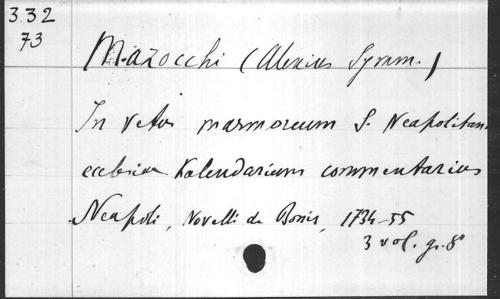 3.32
73
Mazocchi (Alexius Symm.)
In vetus marmoreum S. Neapolitan.
ecclesiae Kalendarium commentarius
Neapoli, Novelli de Bonis, 1734-55
3 vol. gr. 8°